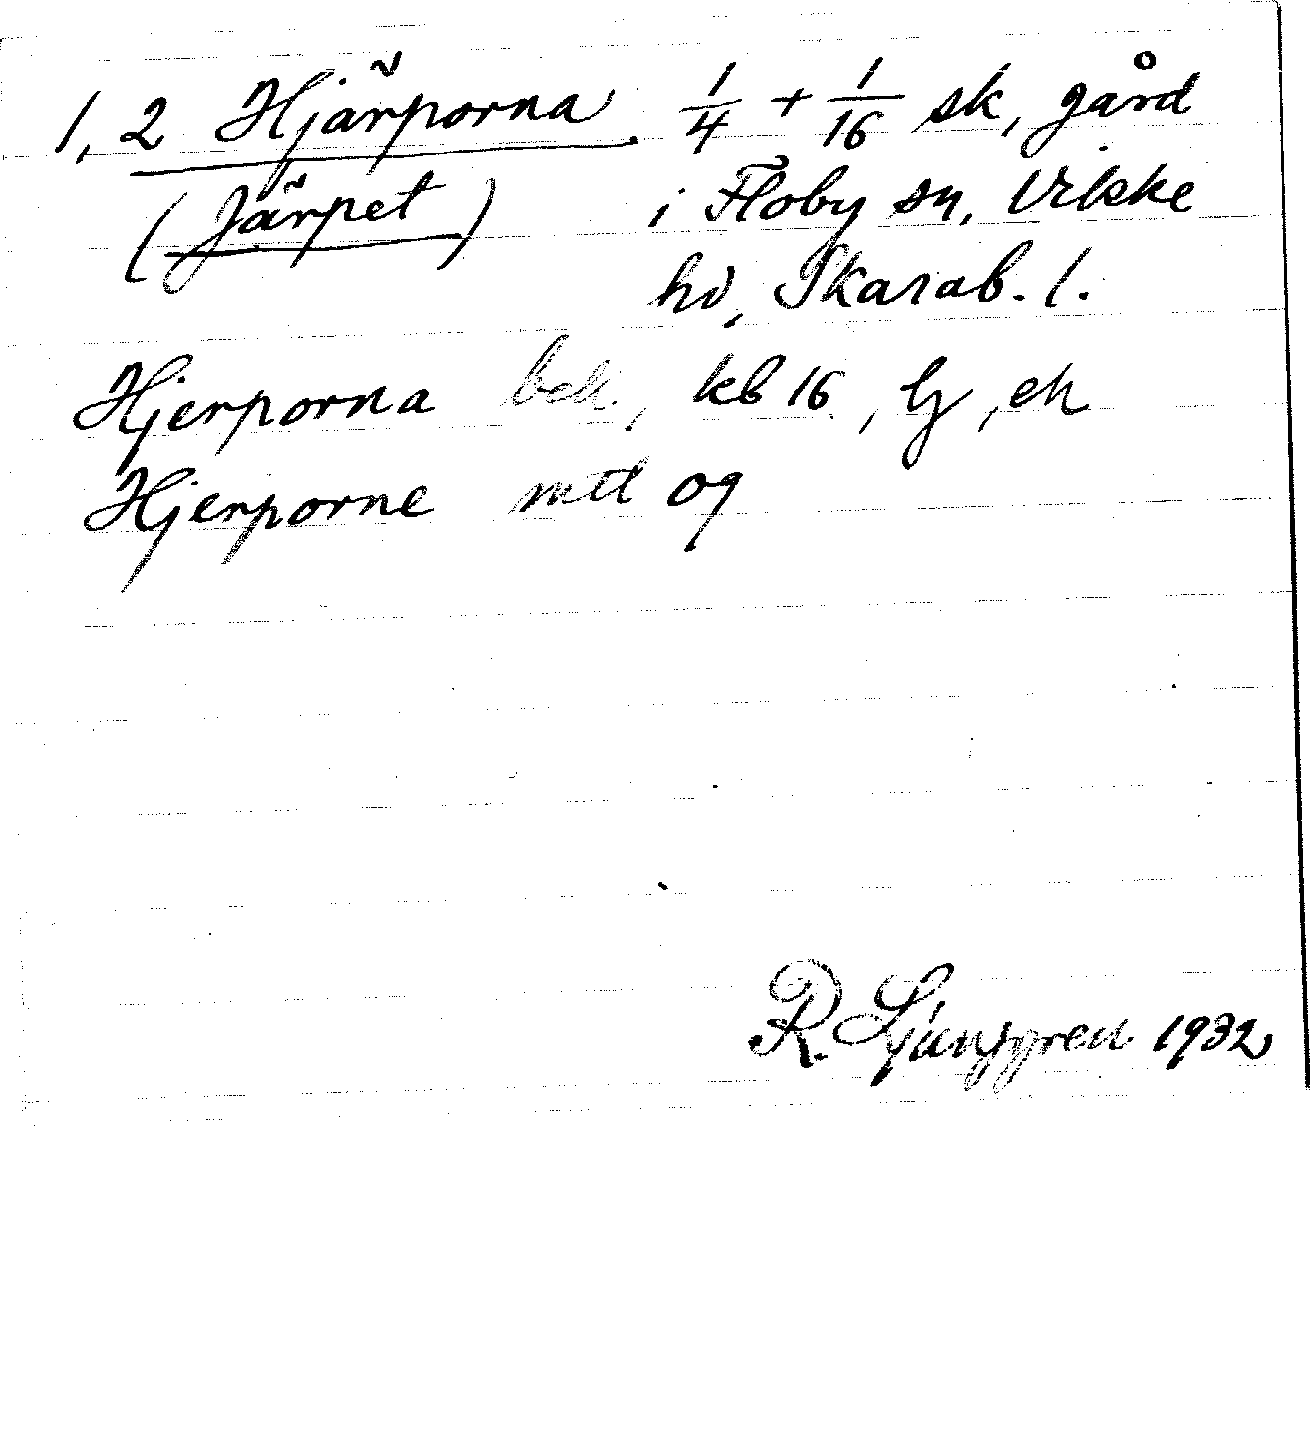 1, 2 Hjärporna. 1/4 + 1/16 sk, gård
(Järpet) i Floby sn, Vilske
hd, Skarab. l.
Hjerporna bek., kb 16, lj, ek
Hjerporne mtl og
R. Ljunggren 1932